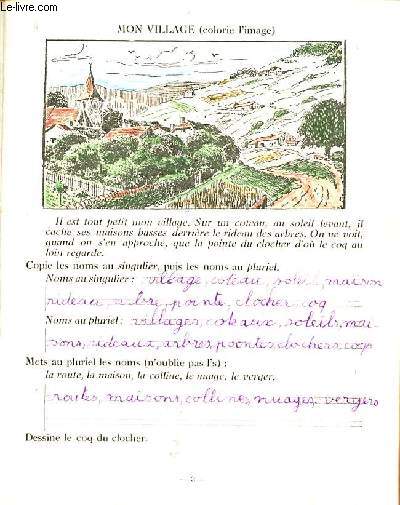 Le-livre.com
MON VILLAGE (colorie l'image)
Il est tout petit mon village. Sur un coteau, au soleil levant, il
cache ses maisons basses derrière le rideau des arbres. On ne voit,
quand on s'en approche, que la pointe du clocher d'où le coq au
loin regarde.
Copie les noms au singulier, puis les noms au pluriel.
Noms au singulier : village, coteau, soleil, maison
rideau, arbre, pointe, clocher, coq
Noms au pluriel : villages, coteaux, soleils, mai-
sons, rideaux, arbres, pointes, clochers, coqs
Mets au pluriel les noms (n'oublie pas l's) :
la route, la maison, la colline, le nuage, le verger.
routes, maisons, collines, nuages, vergers
Dessine le coq du clocher.